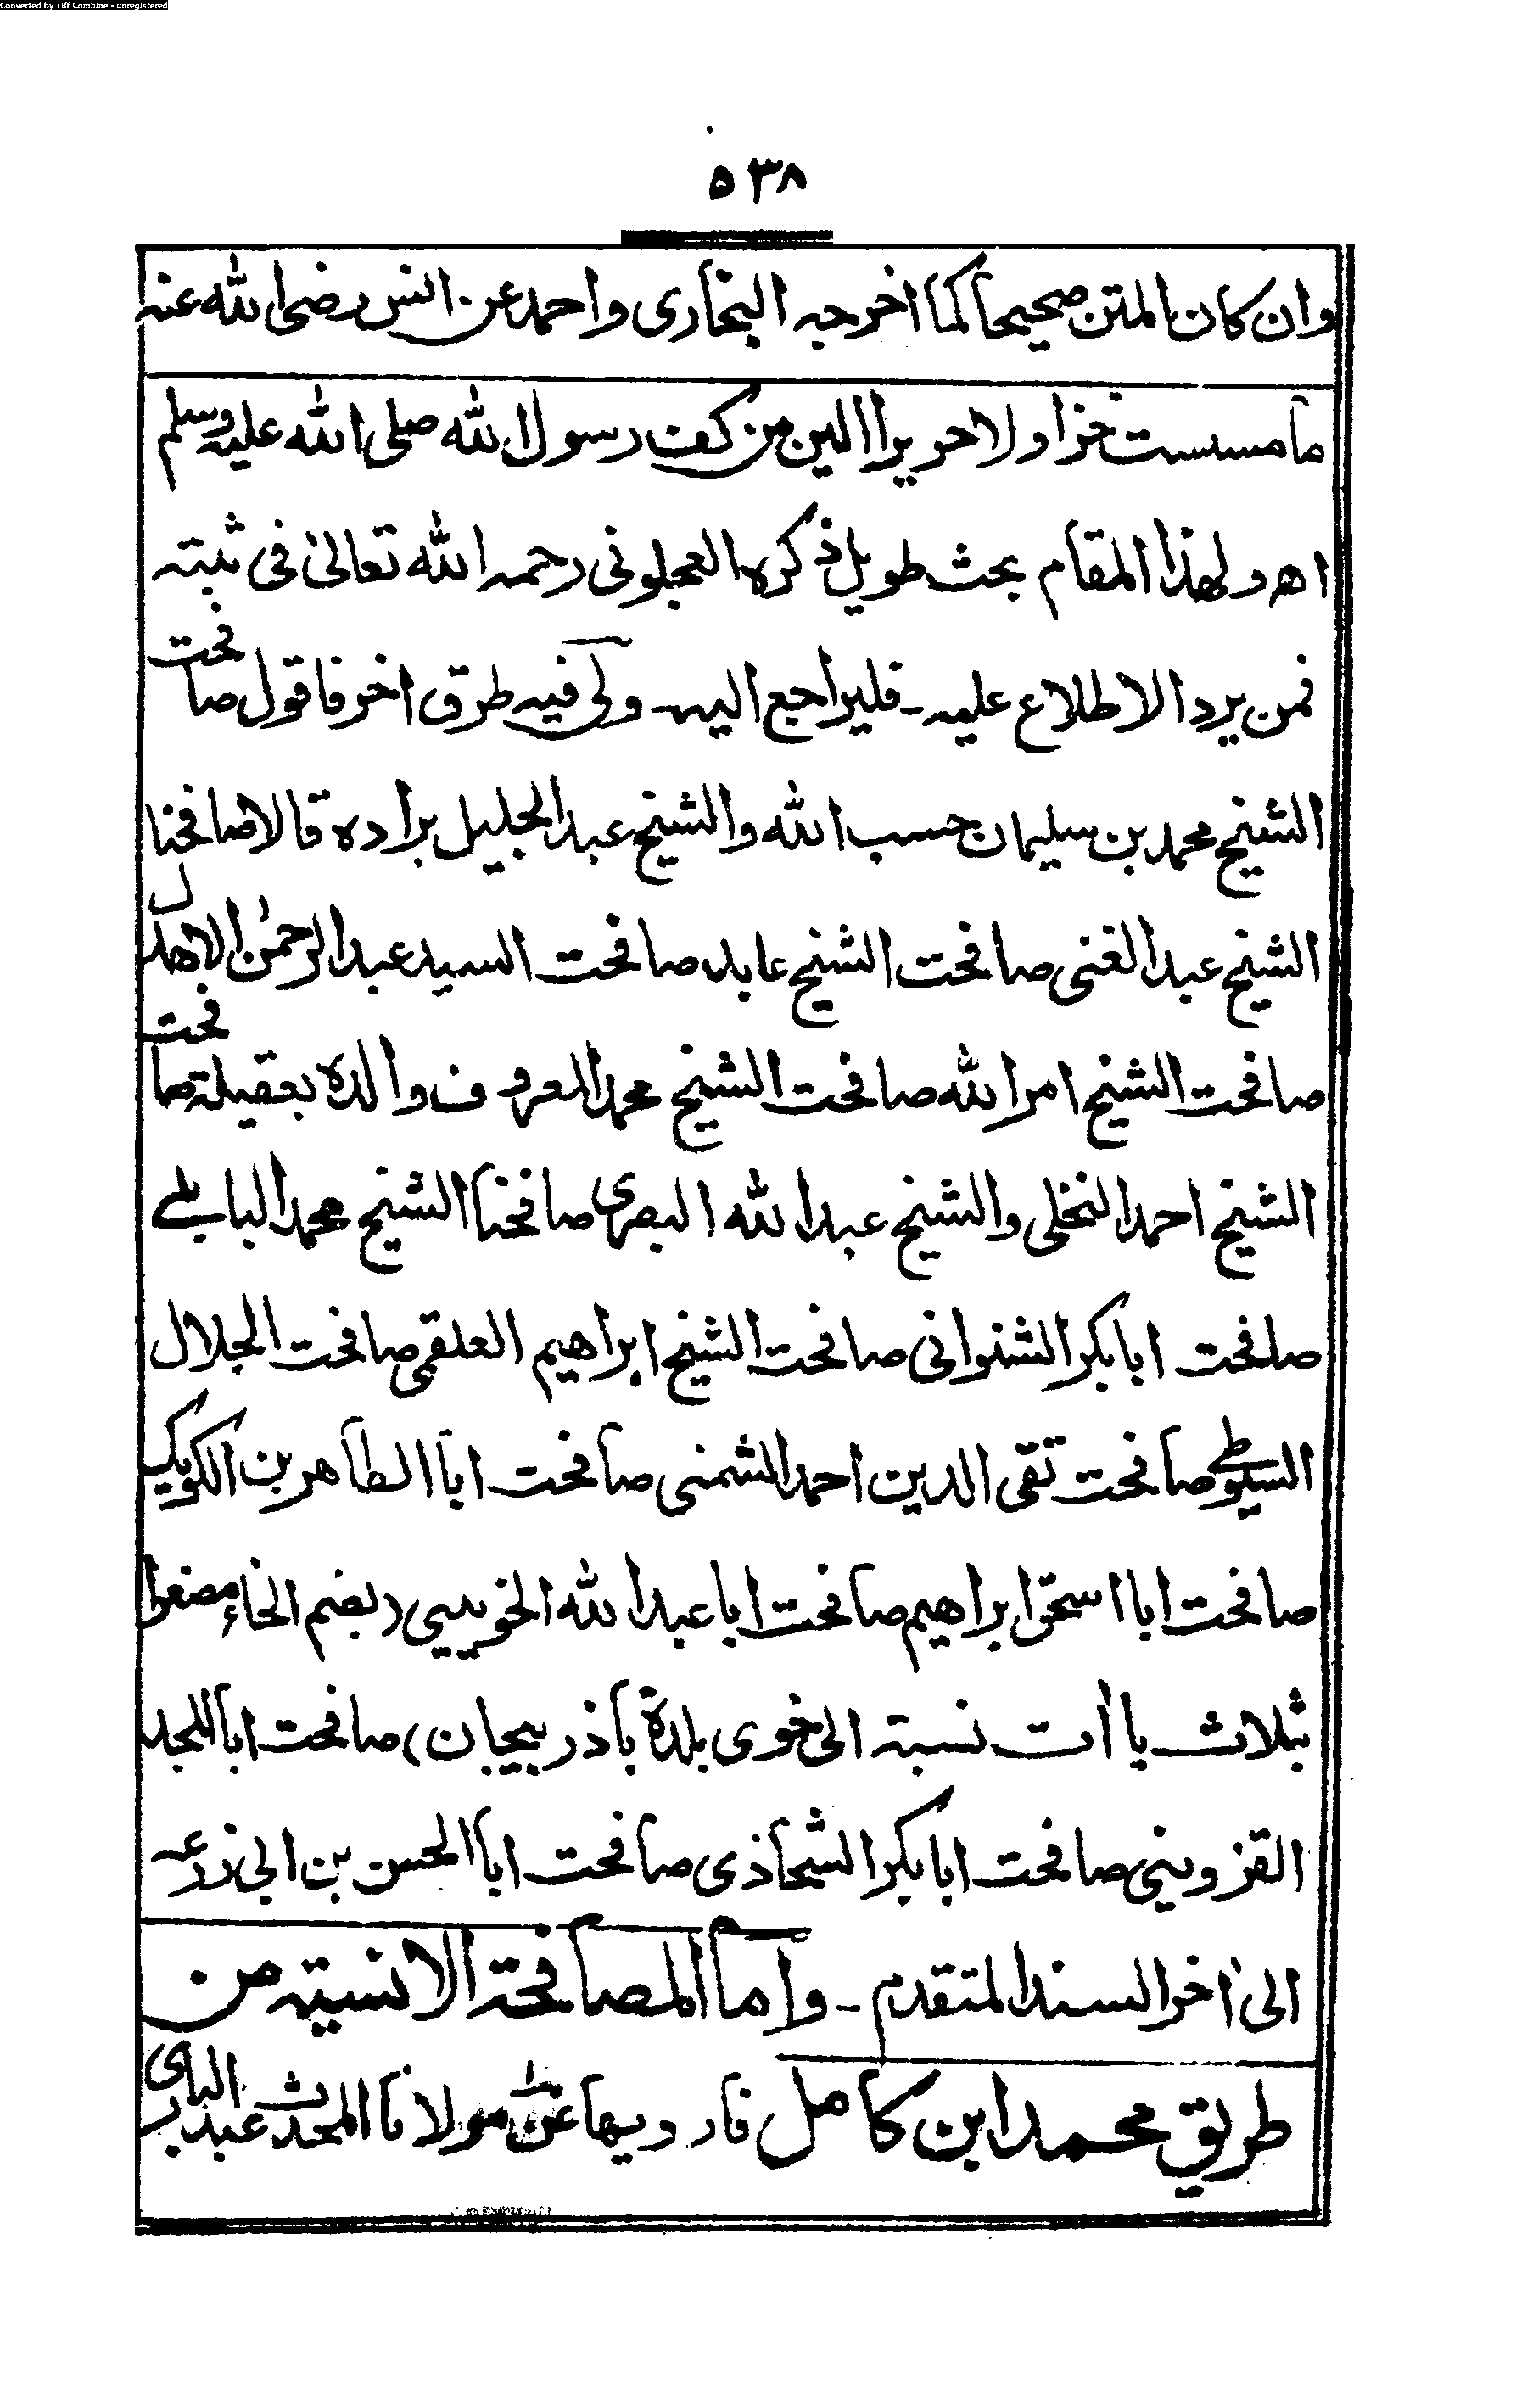 Converted by Tiff Combine - unregistered
٥٣٨
وان كان المتن صحيحا كما اخرجه البخارى واحمد عن انس رضى الله عنه
ما مسست خزا ولا حريرا الين من كف رسول الله صلى الله عليه وسلم
اهـ ولهذا المقام بحث طويل ذكره العجلونى رحمه الله تعالىٰ فى ثبته
فمن يرد الاطلاع عليه۔ فليراجع اليه۔ ولى فيه طرق اخر فاقول صافحت
الشيخ محمد بن سليمان حسب الله والشيخ عبد الجليل براده قالا صافحنا
الشيخ عبد الغنى صافحت الشيخ عابد صافحت السيد عبد الرحمٰن الاهدل
صافحت الشيخ امر الله صافحت الشيخ محمد المعروف والده بعقيلة صافحت
الشيخ احمد النخلى والشيخ عبد الله البصرى صافحنا الشيخ محمد البابلے
صافحت ابا بكر الشنوانى صافحت الشيخ ابراهيم العلقمى صافحت الجلال
السيوطے صافحت تقى الدين احمد الشمنى صافحت ابا الطاهر بن الكويك
صافحت ابا اسحٰق ابراهيم صافحت ابا عبد الله الخويىى (بضم الخاء مصغرا
بثلاث ياأت نسبة الى خوى بلدة باذربيجان) صافحت ابا المجد
القزوينى صافحت ابا بكر الشحاذى صافحت ابا الحسن بن ابى زرعه
الىٰ اخر السند المتقدم ۔ واما المصافحة الانسيته من
طريق محمد ابن كامل فارويها عن مولانا المحدث عبد البارى